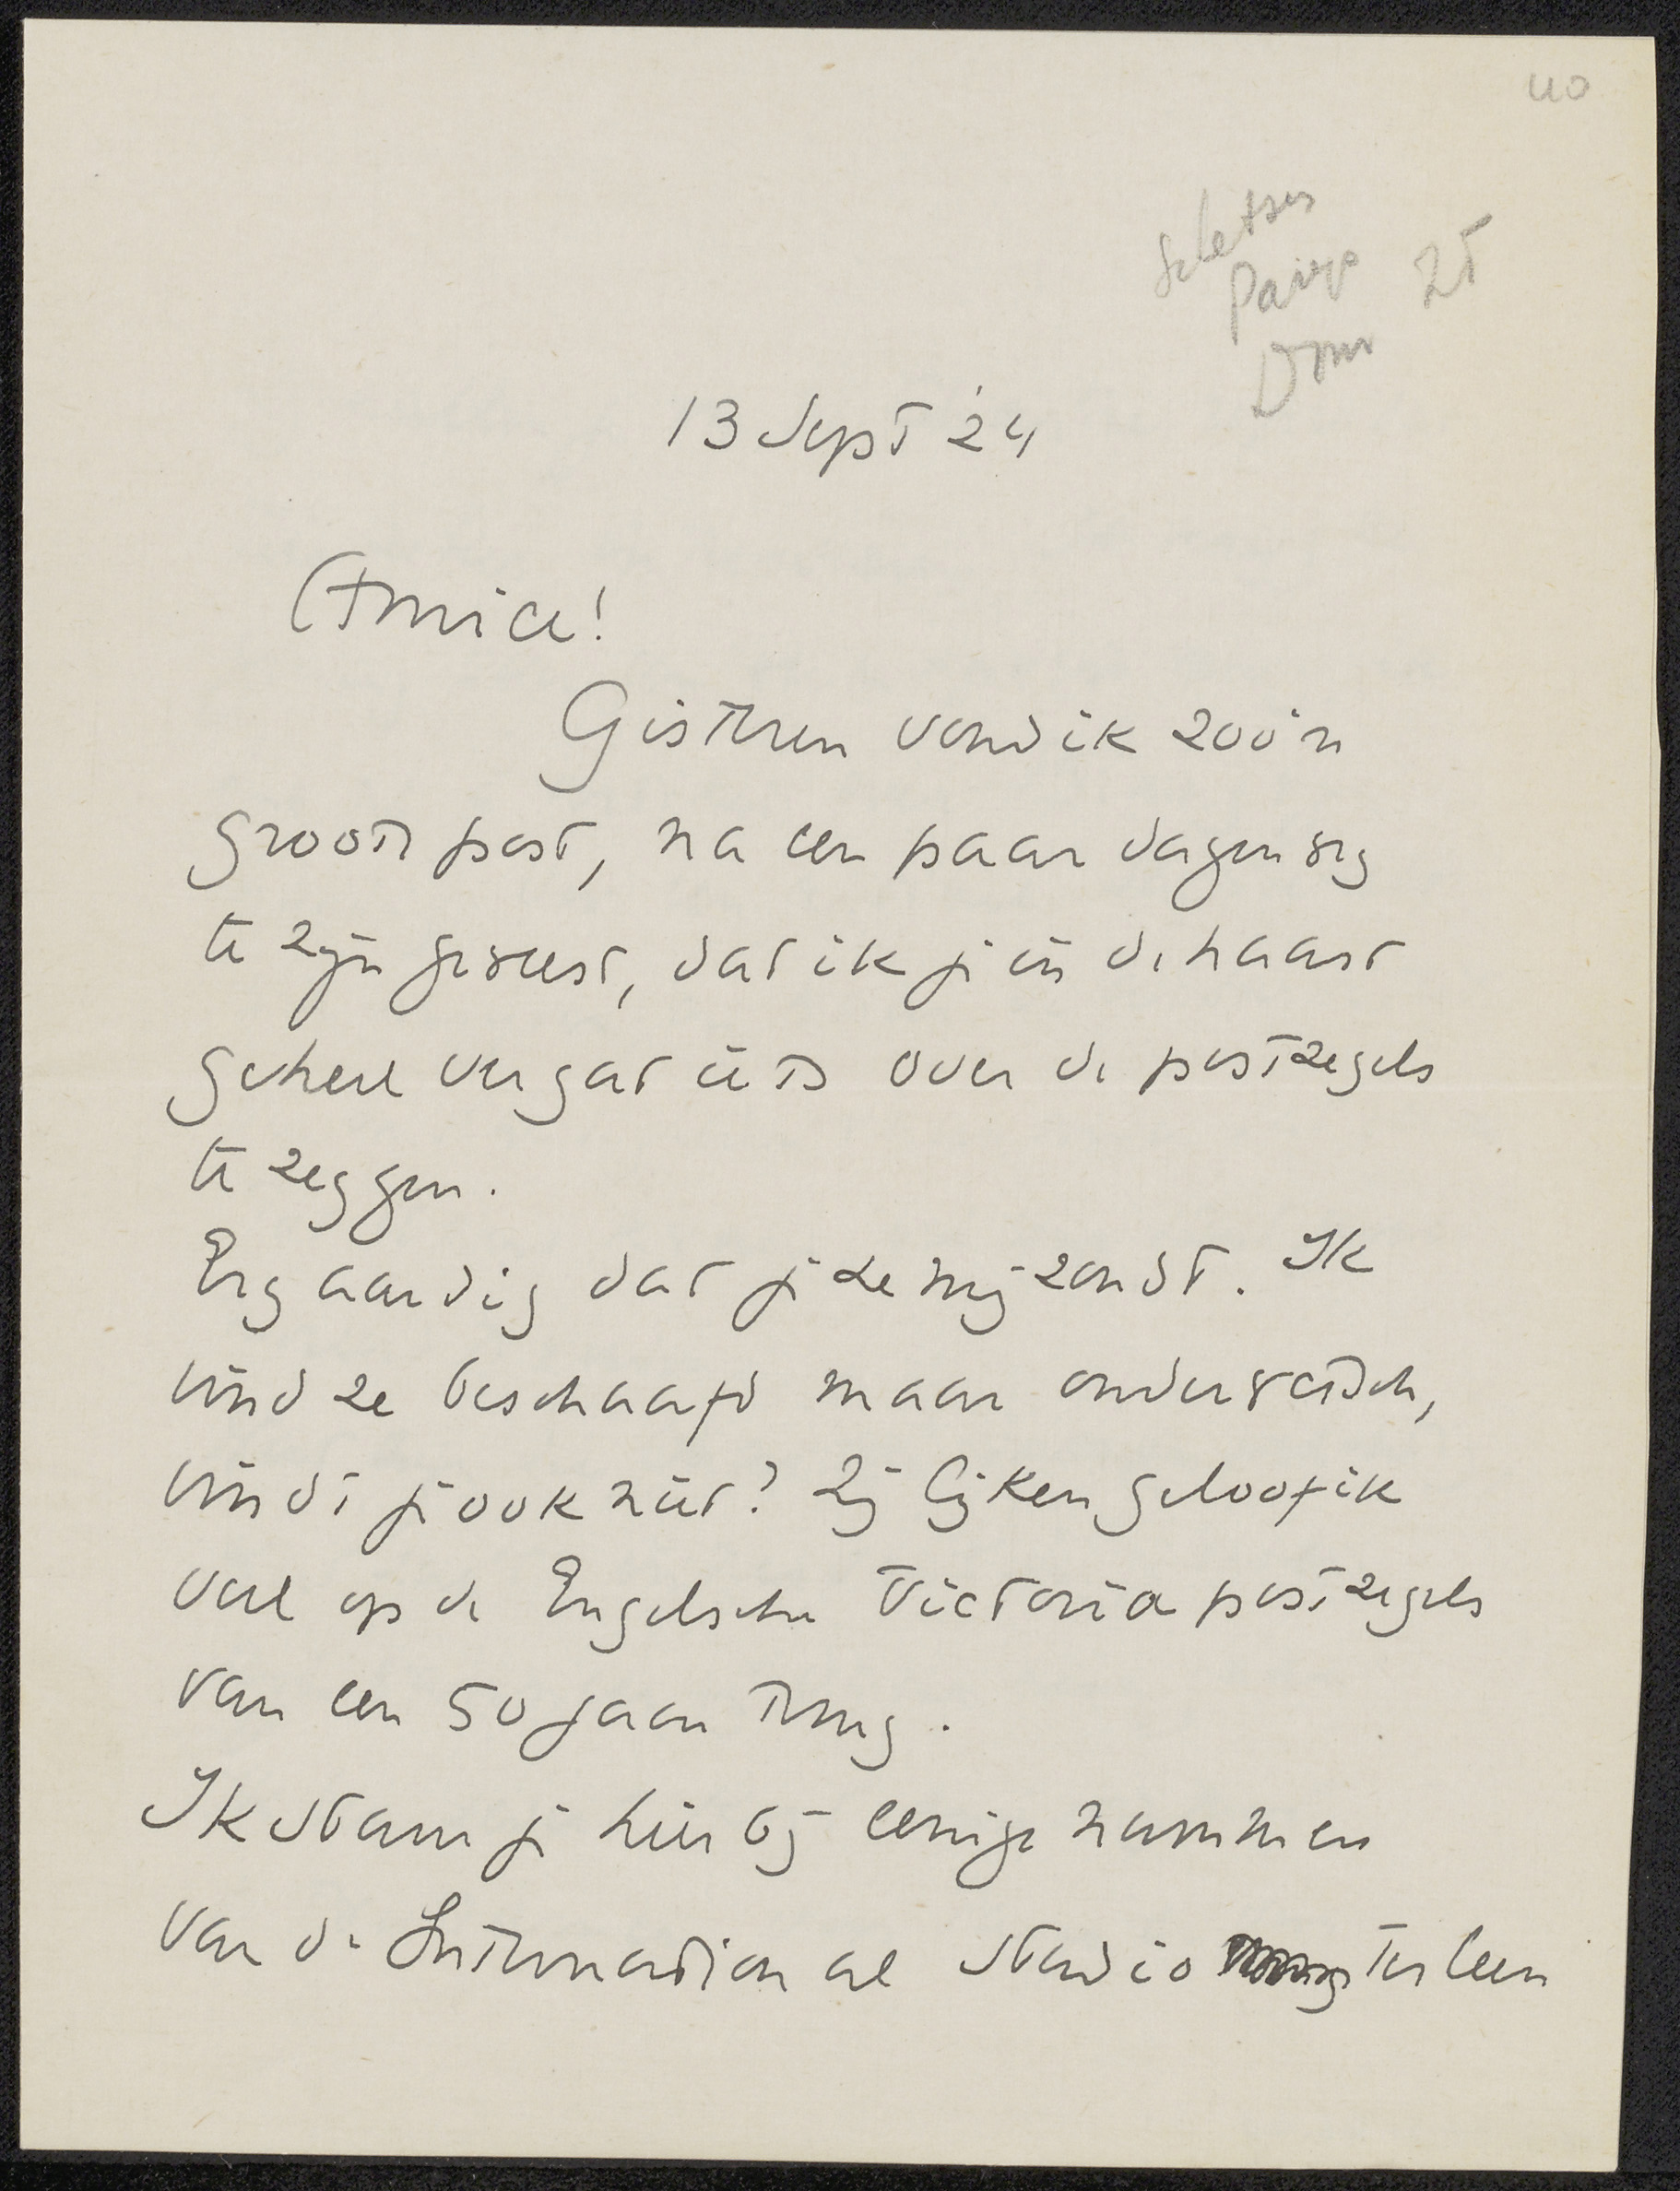 40
schetsen
Parijs 25
Dom
13 Sept '24
Amice!
Gisteren vond ik zoo'n
groote post, na een paar dagen weg
te zijn geweest, dat ik je in de haast
geheel vergat iets over de postzegels
te zeggen.
Erg aardig dat je ze mij zondt. Ik
vind ze beschaafd maar onderwetsch,
vindt je ook niet? Zij lijken geloof ik
veel op de Engelsche Victoria postzegels
van een 50 jaar terug.
Ik stuur je hier bij eenige nummers
van de International Studio ter leen